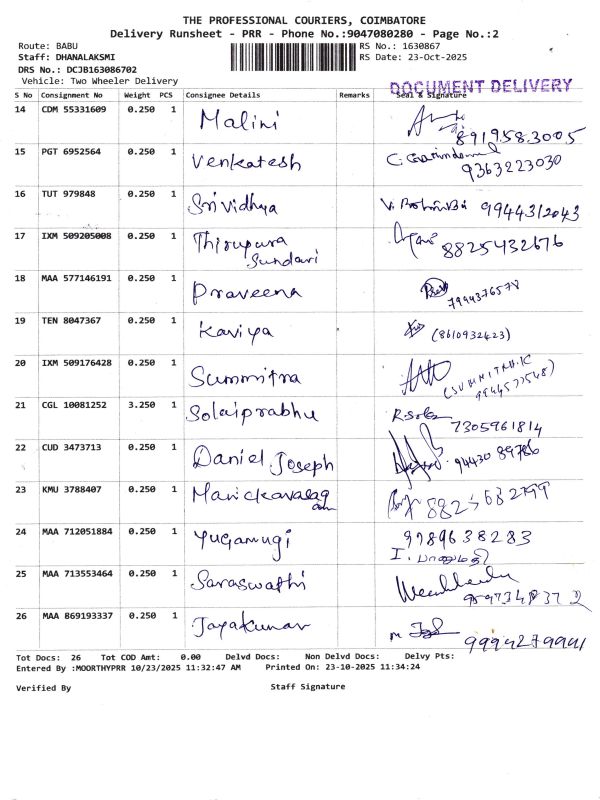 THE PROFESSIONAL COURIERS, COIMBATORE
Delivery Runsheet - PRR - Phone No.:9047080280 - Page No.:2
Route: BABU RS No.: 1630867
Staff: DHANALAKSMI RS Date: 23-Oct-2025
DRS No.: DCJB163086702
Vehicle: Two Wheeler Delivery
DOCUMENT DELIVERY
S No Consignment No Weight PCS Consignee Details Remarks Seal & Signature
14 CDM 55331609 0.250 1 Malini
8919583005
15 PGT 6952564 0.250 1 Venkatesh
9363223030
16 TUT 979848 0.250 1 Srividhya 9944312043
17 IXM 509205008 0.250 1 Thirupura
Sundari 8825432676
18 MAA 577146191 0.250 1 Praveena
7944376578
19 TEN 8047367 0.250 1 Kaviya (8610932423)
20 IXM 509176428 0.250 1 Summitra
21 CGL 10081252 3.250 1 Solaiprabhu
7305961814
22 CUD 3473713 0.250 1 Daniel Joseph 9443089786
23 KMU 3788407 0.250 1 Manickavalag
24 MAA 712051884 0.250 1 Yugamugi 9789638283
25 MAA 713553464 0.250 1 Saraswathi
26 MAA 869193337 0.250 1 Jayakumar
9994279991
Tot Docs: 26 Tot COD Amt: 0.00 Delvd Docs: Non Delvd Docs: Delvy Pts:
Entered By :MOORTHYPRR 10/23/2025 11:32:47 AM Printed On: 23-10-2025 11:34:24
Verified By Staff Signature